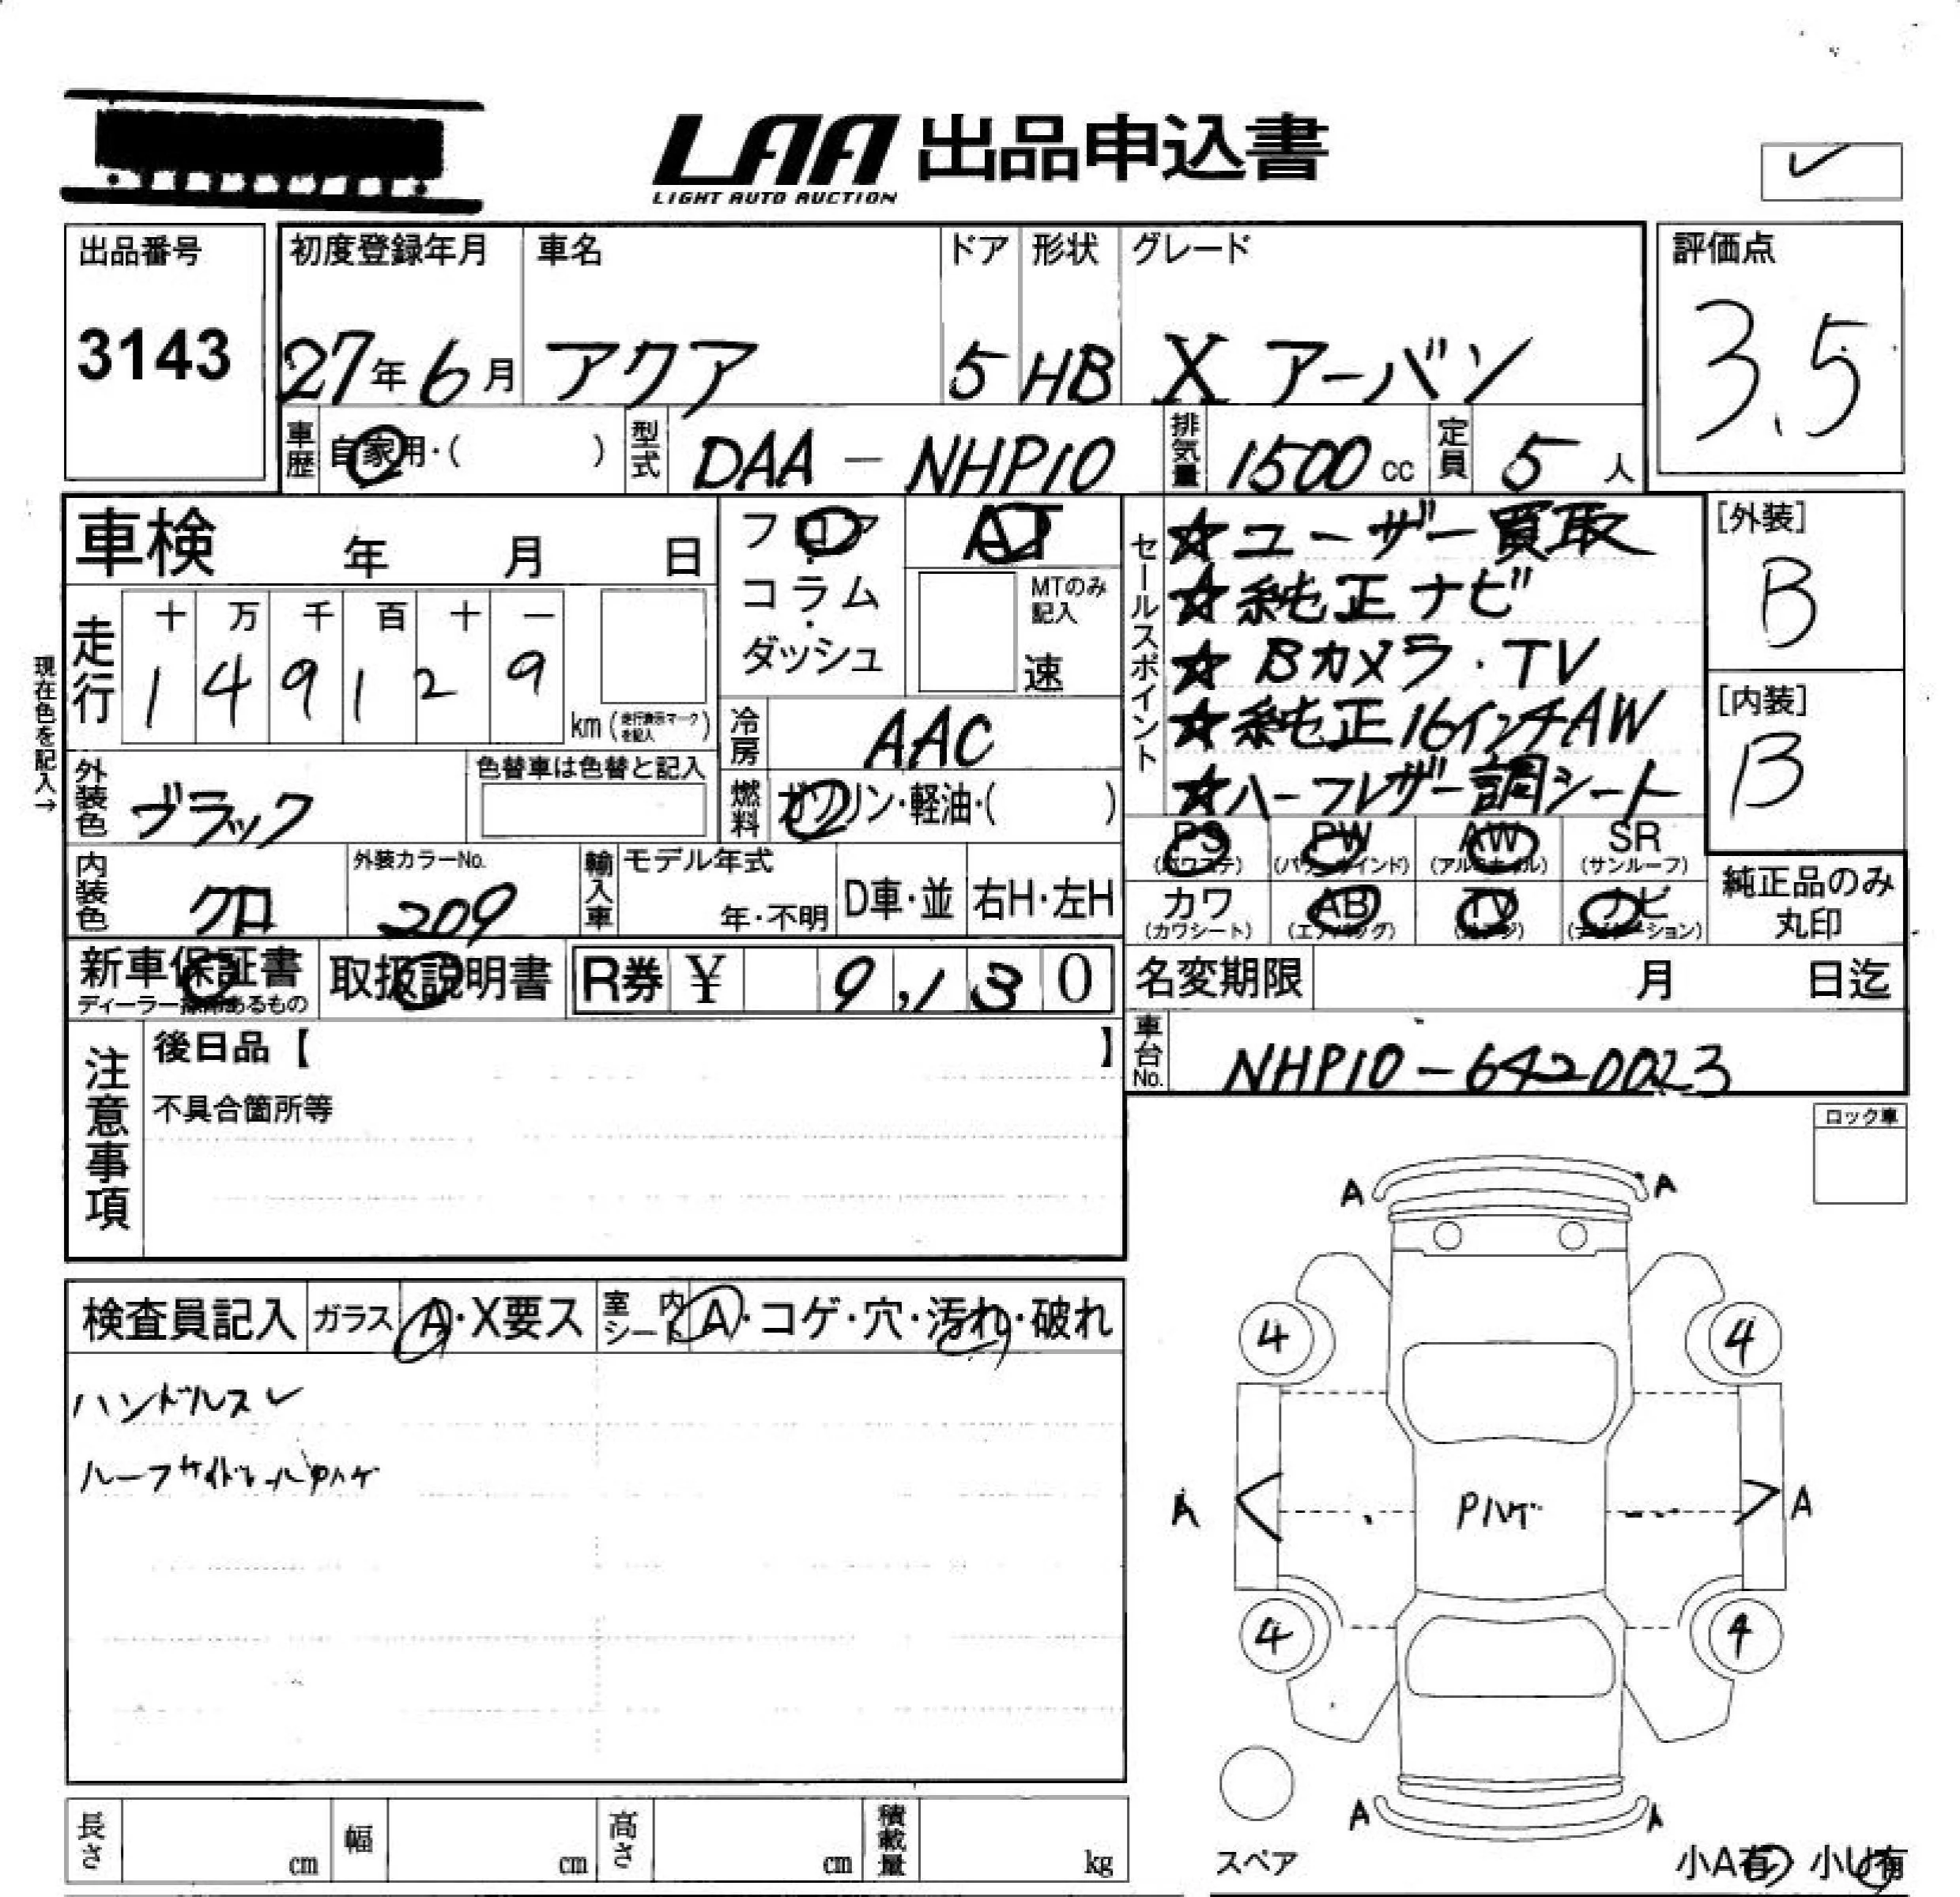 LAA 出品申込書
LIGHT AUTO AUCTION
出品番号 初度登録年月 車名 ドア 形状 グレード 評価点
3143 27年 6月 アクア 5 HB X アーバン 3.5
車歴 自家用・( ) 型式 DAA-NHP10 排気量 1500 cc 定員 5 人
車検 年 月 日
フロア・コラム・ダッシュ
AT
MTのみ記入
速
セールスポイント
☆ユーザー買取
☆純正ナビ
☆Bカメラ・TV
☆純正16インチAW
☆ハーフレザー調シート
[外装]
B
[内装]
B
現在色を記入→
走行 十 万 千 百 十 一
1 4 9 1 2 9
km (走行表示マークを記入)
冷房 AAC
外装色 ブラック 色替車は色替と記入
燃料 ガソリン・軽油・( )
PS PW AW SR
(パワステ) (パワーウインド) (アルミホイル) (サンルーフ)
カワ AB TV ナビ
(カワシート) (エアバッグ) (ナビゲーション)
純正品のみ
丸印
内装色 クロ 外装カラーNo. 209 輸入車 モデル年式 年・不明 D車・並 右H・左H
新車保証書 取扱説明書 R券 ¥ 9,130
ディーラー捺印あるもの
名変期限 月 日迄
車台No. NHP10-6420023
注意事項
後日品【 】
不具合箇所等
ロック車
検査員記入 ガラス A・X要ス 室内シート A・コゲ・穴・汚れ・破れ
ハンドルスレ
ルーフサイドレールPハゲ
A A
4 4
A Pハゲ A
4 4
A A
スペア
小A有 小U有
長さ cm 幅 cm 高さ cm 積載量 kg